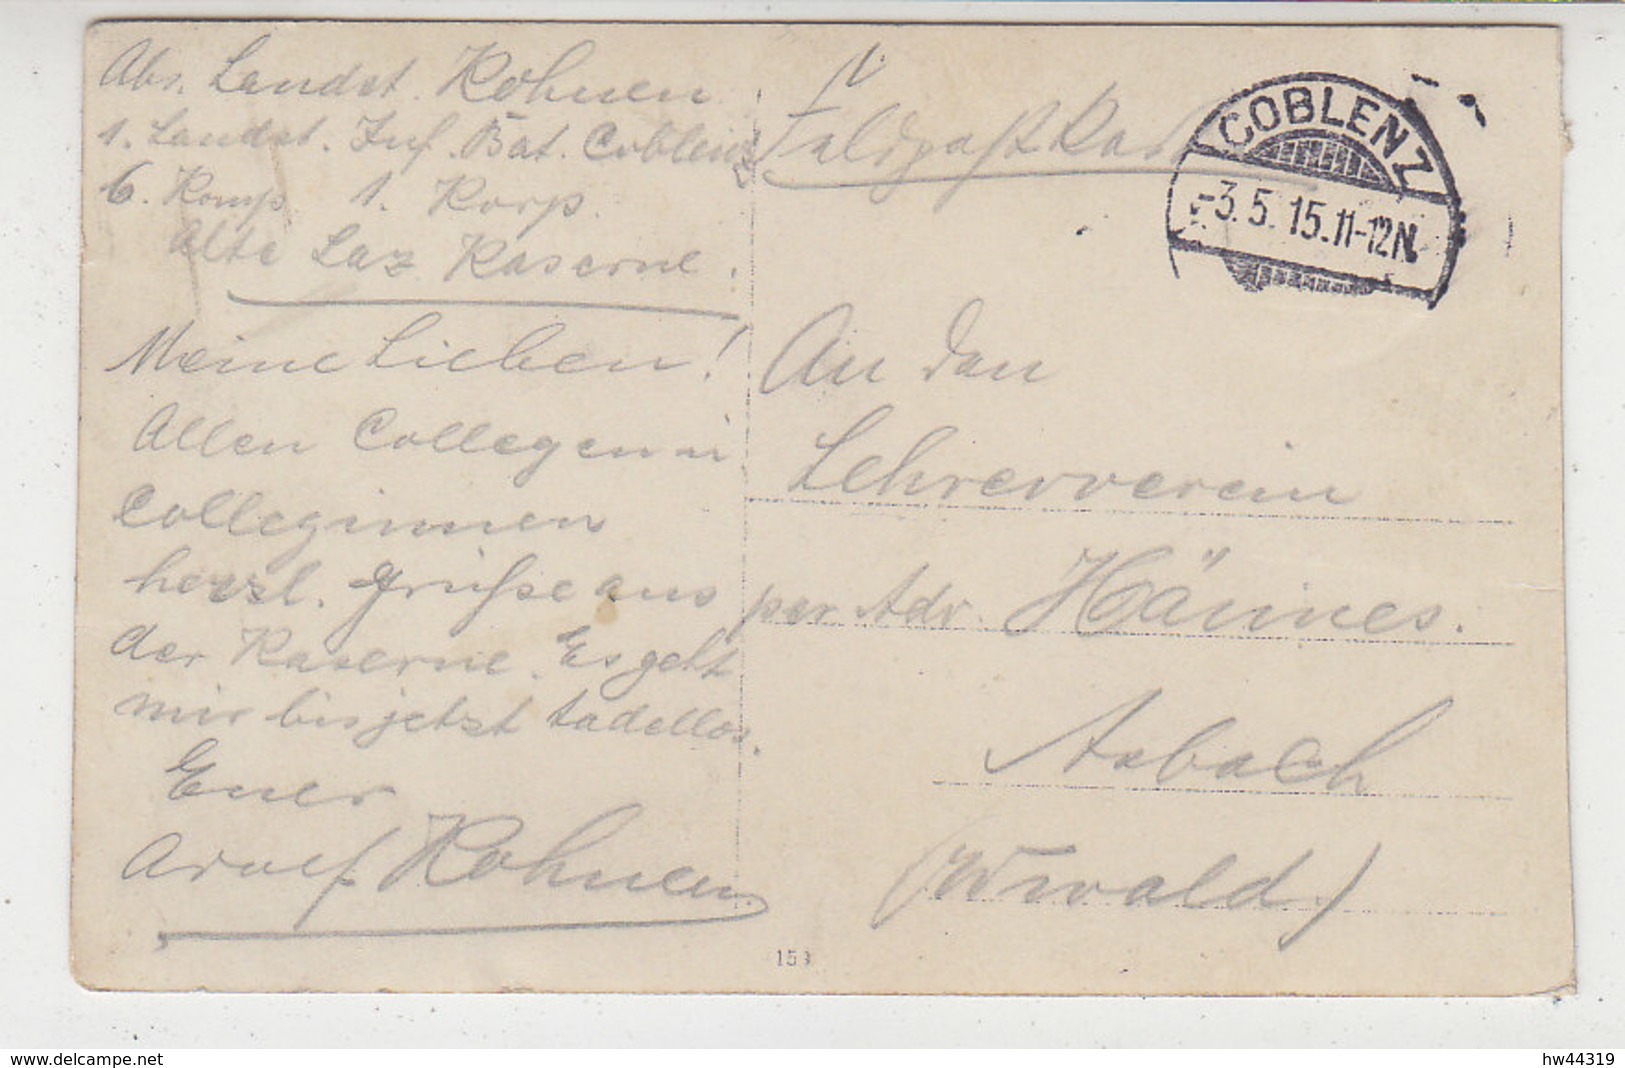 Abs. Landst. Kohnen
1. Landst. Inf. Bat. Coblenz
6. Komp. 1. Korp.
Alte Laz Kaserne.
Meine Lieben!
Allen Collegen u
Colleginnen
herzl. Grüße aus
der Kaserne. Es geht
mir bis jetzt tadellos.
Euer
Kohnen.
Feldpostkarte
COBLENZ
-3.5.15.11-12N.
An den
Lehrerverein
per Adr. Hännes.
Asbach
(Wwald)
153
www.delcampe.net
hw44319